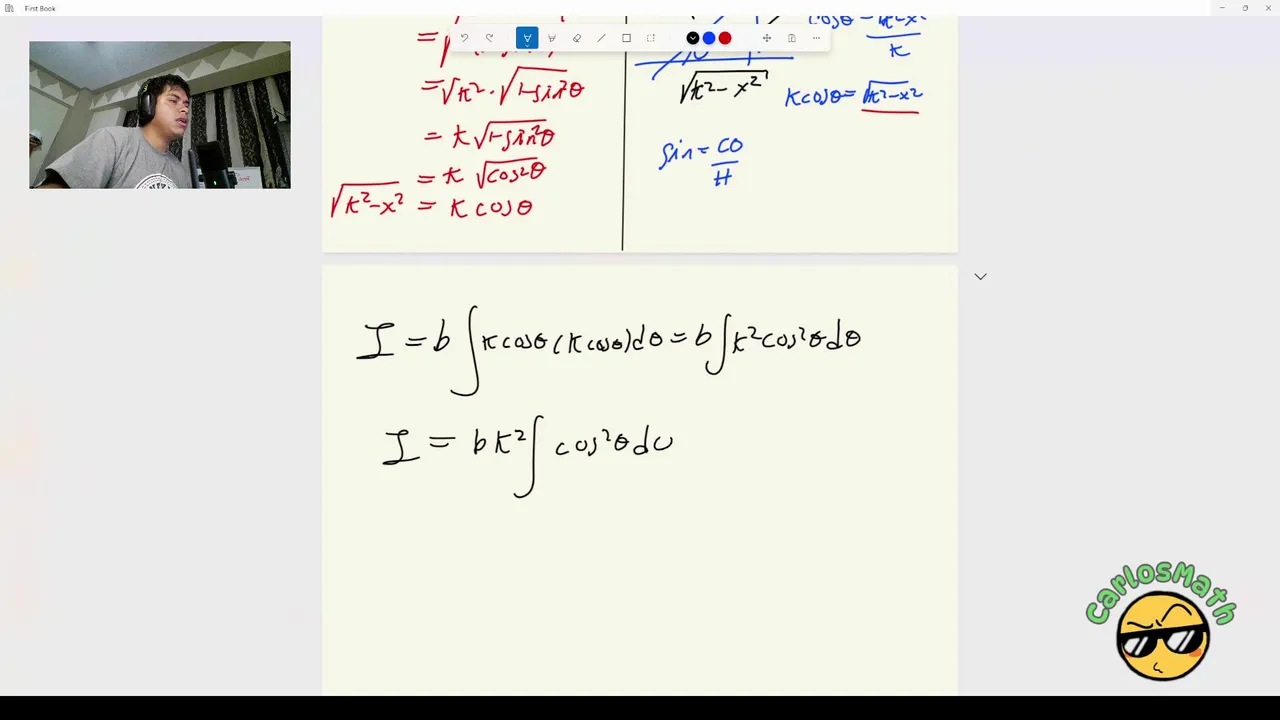 First Book
= √k² · √1-sin²θ
= k √1-sin²θ
= k √cos²θ
√k²-x² = k cosθ
√k²-x²
k
kcosθ = √k²-x²
sin = CO/H
I = b ∫ k cosθ (k cosθ) dθ = b ∫ k² cos²θ dθ
I = bk² ∫ cos²θ dθ
CarlosMath